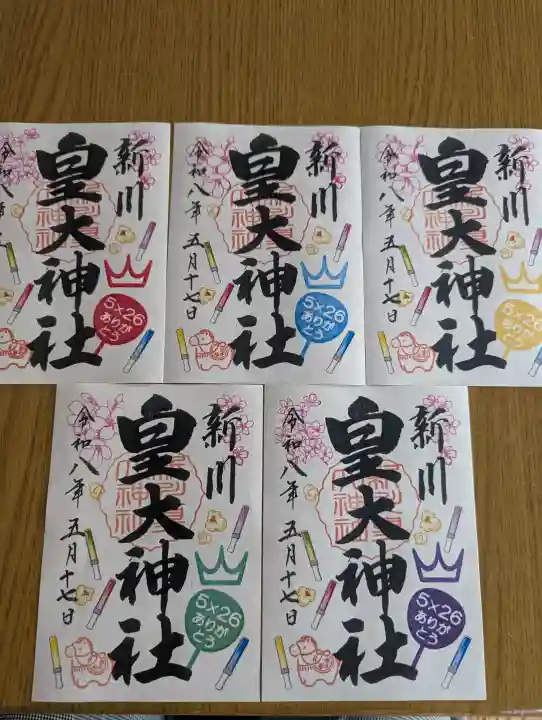 新川
皇大神社
令和八年 五月十七日
5×26
ありが
とう
新川
皇大神社
令和八年 五月十七日
5×26
ありが
とう
新川
皇大神社
令和八年 五月十七日
5×26
ありが
とう
新川
皇大神社
令和八年 五月十七日
5×26
ありが
とう
新川
皇大神社
令和八年 五月十七日
5×26
ありが
とう